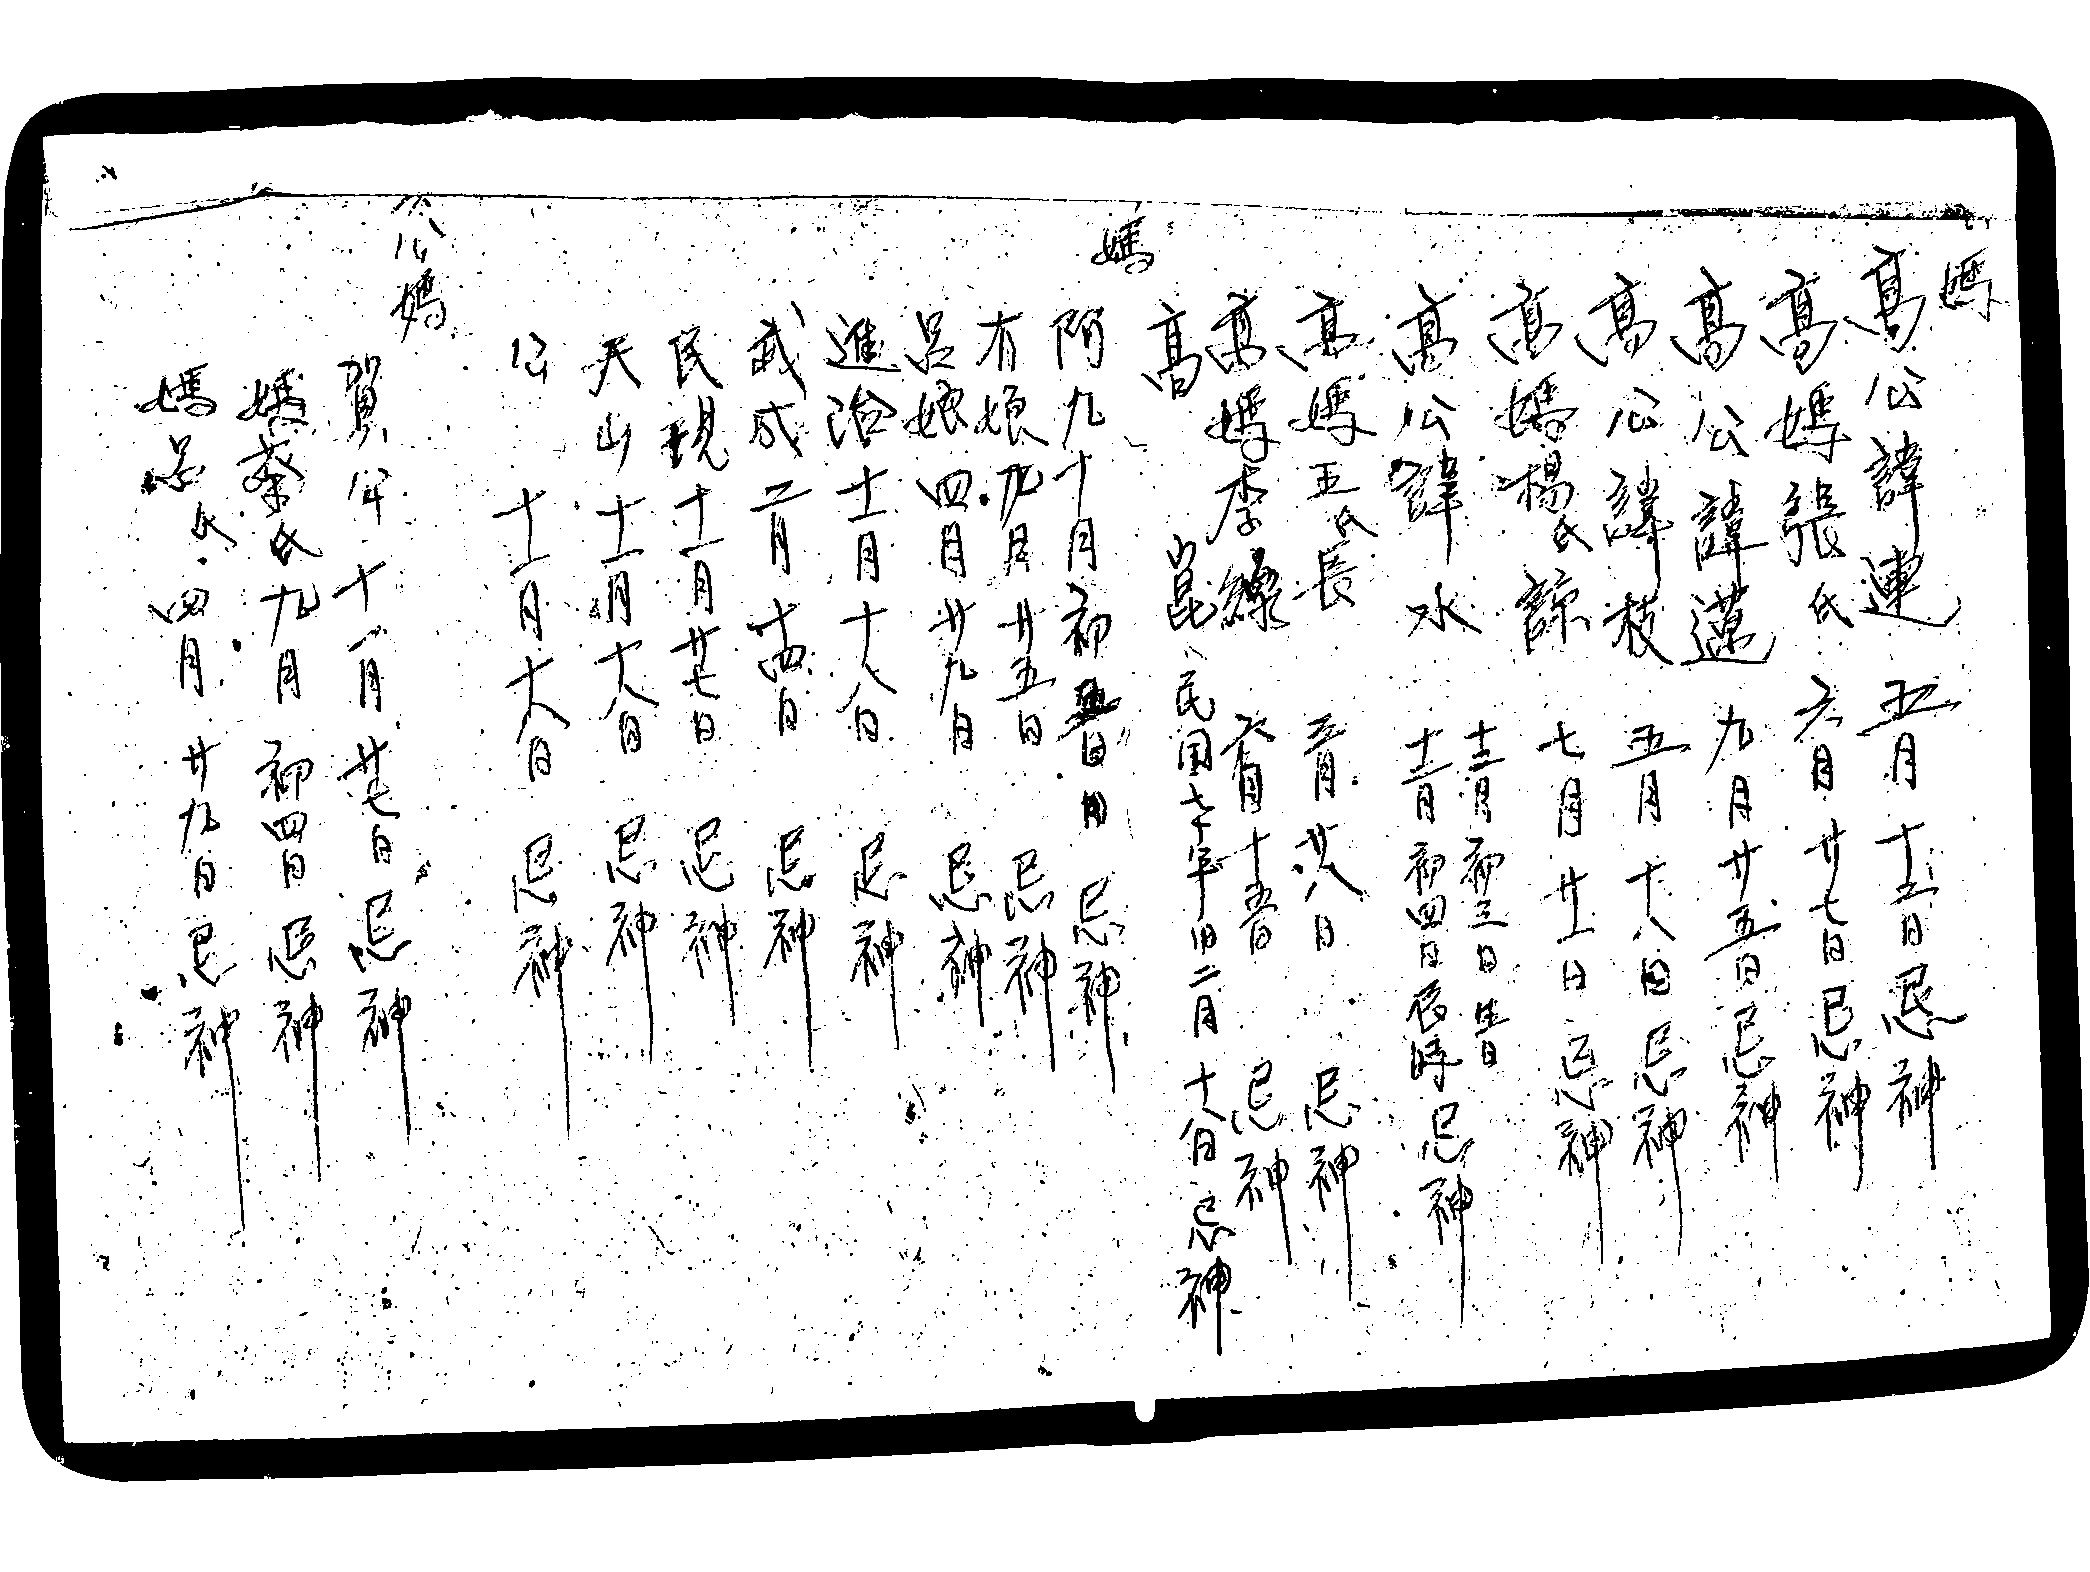 媽
高公諱連 五月十五日忌神
高媽張氏 六月廿七日忌神
高公諱邁 九月廿五日忌神
高公諱枝 五月十八日忌神
高媽楊氏諒 七月廿一日忌神
十二月初三日生日
高公諱水 十二月初四日辰時忌神
高媽王氏長 三月廿八日 忌神
高媽李縹 六月十五日 忌神
高崑 民国七十年旧二月十八日忌神
媽
阿九十月初五日 忌神
有娘九月廿五日 忌神
呂娘四月廿九日 忌神
進治十二月十八日 忌神
武成二月十四日 忌神
民現十一月廿七日 忌神
天山十一月十八日 忌神
公 十一月十八日 忌神
公媽
賀年十一月廿七日忌神
媽蔡氏九月初四日忌神
媽呂氏四月廿九日忌神